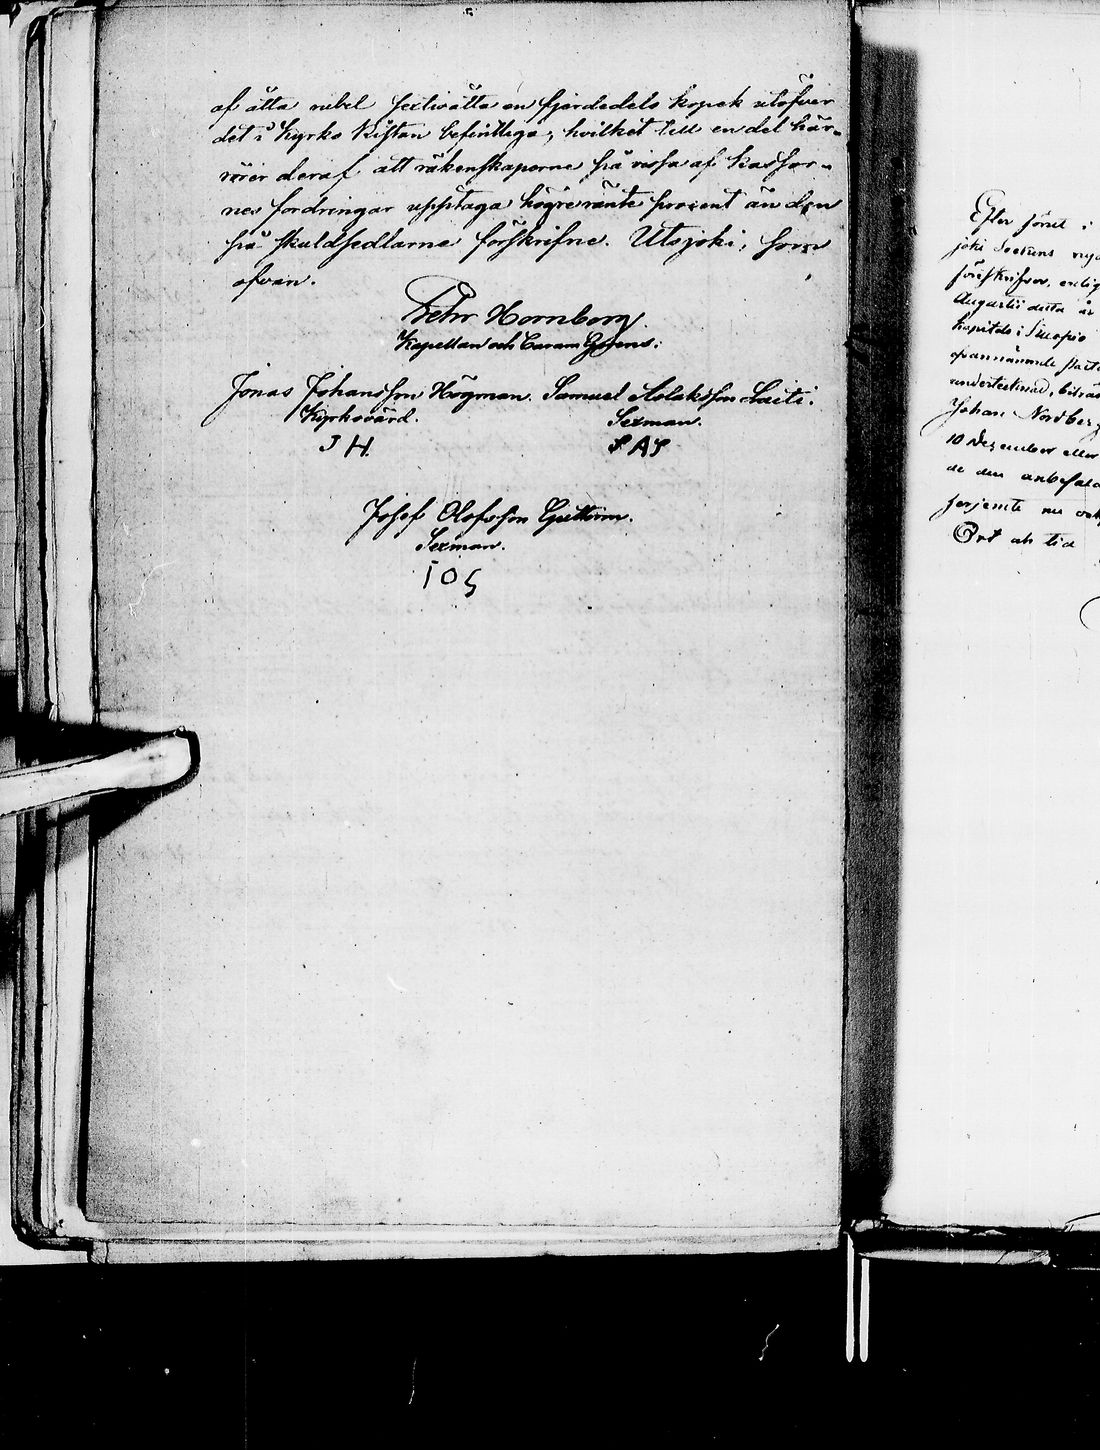 af åtta rubel sextioåtta en fjerdedels kopek utöfver
det i Kyrko Kistan befintliga; hvilket till en del här-
rörer deraf att räkenskaperne frå vissa af Kassor-
nes fordringar upptaga högre ränte procent än den
frå skuldsedlarne förskrifne. Utsjoki, som
ofvan.
Pehr Hornborg.
Kapellan och Curam Gerens.
Jonas Johansson Högman. Samuel Aslaksson Laiti.
Kyrkovärd. Sexman.
J H. S A S
Josef Olofsson Guttorm.
Sexman.
I O S
Efter jönet i
joki Sockens
föreskrifver, enlig
Augusti detta år
Kapitels i Kuopio
ofvannämnde
undertecknad, biträ
Johan Nordberg
10 December eller
de den anbefald
ferjemte nu och
Ort ah tid